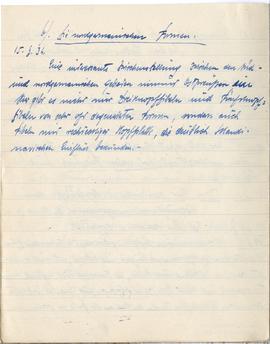 b/. Die nordgermanischen Formen.
15. 3. 32.
Eine interessante Zwischenstellung zwischen den Süd-
und nordgermanischen Gebieten nimmt Ostpreußen ein
Hier gibt es nicht nur Dreiknopffibeln und Fünfknopf-
fibeln von sehr oft degenerierten Formen, sondern auch
Fibeln mit rechteckiger Kopfplatte, die deutlich skandi-
navischen Einfluss bekunden.-